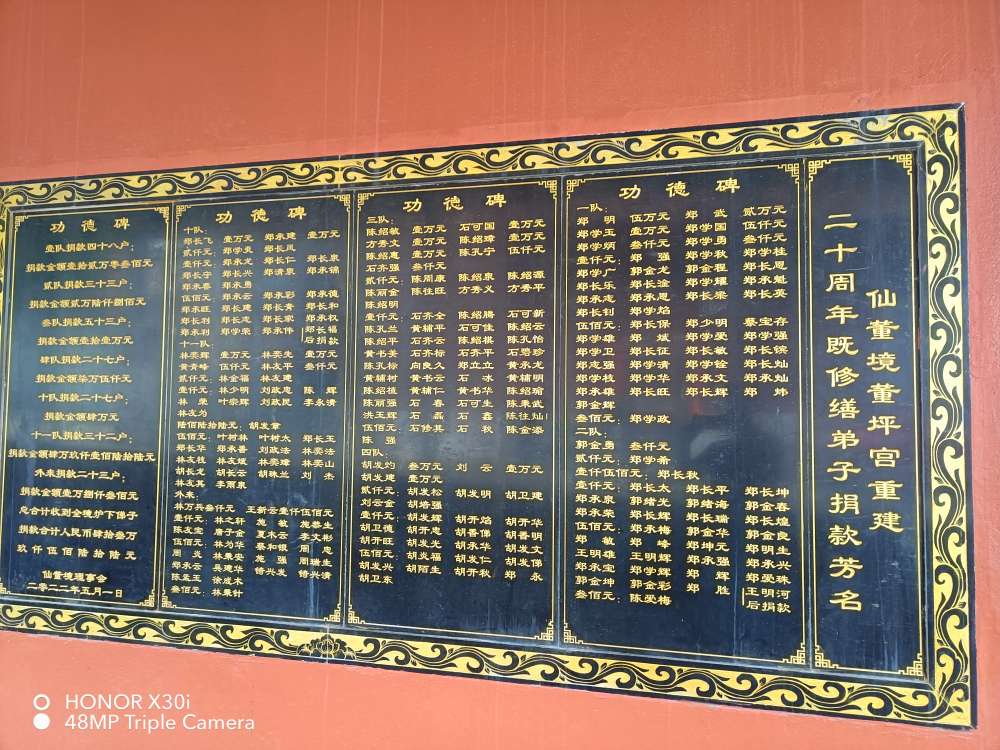 仙董境董坪宫重建
二十周年既修缮弟子捐款芳名
功德碑
一队：
郑明 伍万元 郑武 贰万元
郑学玉 壹万元 郑学国 伍仟元
郑学炳 壹万元 郑学勇 叁仟元
壹仟元： 郑强 郑学秋 郑学桂
郑学广 郭金龙 郭金程 郑长恩
郑长乐 郑长淦 郑学耀 郑永魁
郑永志 郑永恩 郑长梁 郑长英
郑长钊 郑学焰
伍佰元： 郑长保 郑少明 蔡宝存
郑学雄 郑斌 郑学爱 郑学强
郑学卫 郑长征 郑学敏 郑长镔
郑志强 郑学清 郑学铨 郑长灿
郑学枝 郑学华 郑永文 郑永灿
郑永雄 郑长旺 郑长辉 郑帅
郭金辉
叁佰元： 郑学政
二队：
郭金勇 叁仟元
贰仟元： 郑学希
壹仟伍佰元： 郑长秋
壹仟元： 郑长太 郑长平 郑长坤
郑永泉 郭绪光 郭绪海 郭金春
郑永荣 郑长辉 郑长瑞 郑长煌
伍佰元： 郑永梅 郭金华 郭金良
郑敏 郑峰 郭坤元 郭明生
王明雄 王明辉 郑永强 郑永兴
郑永宝 郭学辉 郑金辉 郑爱珠
郭金坤 郭金彩 郑胜 王明河
叁佰元： 陈爱梅 后捐款
功德碑
三队：
陈绍敏 壹万元 石可国 壹万元
方秀文 壹万元 陈绍璋 壹仟元
陈绍惠 壹万元 陈孔宁 伍仟元
石齐强 叁仟元
贰仟元： 陈周康 陈绍泉 陈绍源
陈丽金 陈往旺 方秀义 方秀平
陈绍明
壹仟元： 石齐全 陈绍腾 石可新
陈孔兰 黄辅平 石可佳 陈绍云
陈绍平 石齐云 陈绍棋 陈孔怡
黄书美 石齐标 石齐平 石碧珍
陈孔标 向良久 郑立立 黄永龙
黄辅村 黄书云 石冰 黄辅明
陈绍植 黄辅仁 黄书华 陈绍瑜
陈丽强 石春 石可生 陈秉武
洪玉辉 石磊 石鑫 陈往灿
伍佰元： 石修其 石秋 陈金添
陈强
四队：
胡发灼 叁万元 刘云 壹万元
胡发建 壹万元
贰仟元： 胡发松 胡发明 胡卫建
刘云金 胡培强
壹仟元： 胡发辉 胡开焰 胡开华
胡卫德 胡开忠 胡善佛 胡善明
胡开旺 胡发光 胡永华 胡发文
伍佰元： 胡炎福 胡发仁 胡发佛
胡发兴 胡陌生 胡开秋 郑永
胡卫东
功德碑
十队：
郑长飞 壹万元 郑永建 壹万元
贰仟元： 郑学贵 郑长凤
壹仟元： 郑永龙 郑长仁 郑长泉
郑长守 郑长兴 郑清泉 郑永锦
郑永春 郑永勇
伍佰元： 郑永云 郑永彩 郑永德
郑永旺 郑长建 郑长青 郑长和
郑长利 郑长志 郑长家 郑永权
郑永利 郑学荣 郑永伴 郑长福
后捐款
十一队：
林奕辉 壹万元 林奕先 壹万元
黄青峰 伍仟元 林友平 叁仟元
贰仟元： 林金福 林友建
壹仟元： 林少明 刘政恩 陈辉
林荣 叶宗辉 刘政民 李永清
林友为
陆佰陆拾陆元： 胡发章
伍佰元： 叶树林 叶树太 郑长玉
郑长华 郑永善 刘政法 林奕法
林友枝 林友斌 林奕璋 林奕山
胡长龙 胡长云 胡珠兰 刘杰
林友其 李丽泉
外来：
林万兵叁仟元 王新云壹仟伍佰元
壹仟元： 林之轩 施敏 施黎生
陈友堂 唐子金 夏木云 李文彬
伍佰元： 林为华 蔡和银 周忠
周炎 林秉华 施强 周瑞生
郑永云 吴建华 锫兴发 锫兴清
陈孟玉 徐成木
叁佰元： 林秉针
功德碑
壹队捐款四十八户；
捐款金额壹拾贰万零叁佰元
贰队捐款三十三户；
捐款金额贰万陆仟捌佰元
叁队捐款五十三户；
捐款金额壹拾壹万元
肆队捐款二十七户；
捐款金额柒万伍仟元
十队捐款二十七户；
捐款金额肆万元
十一队捐款三十二户；
捐款金额肆万玖仟壹佰陆拾陆元
外来捐款二十三户；
捐款金额壹万捌仟叁佰元
总合计收到全境炉下佛子
捐款合计人民币肆拾叁万
玖仟伍佰陆拾陆元
仙董境理事会
二零二二年五月一日
HONOR X30i
48MP Triple Camera